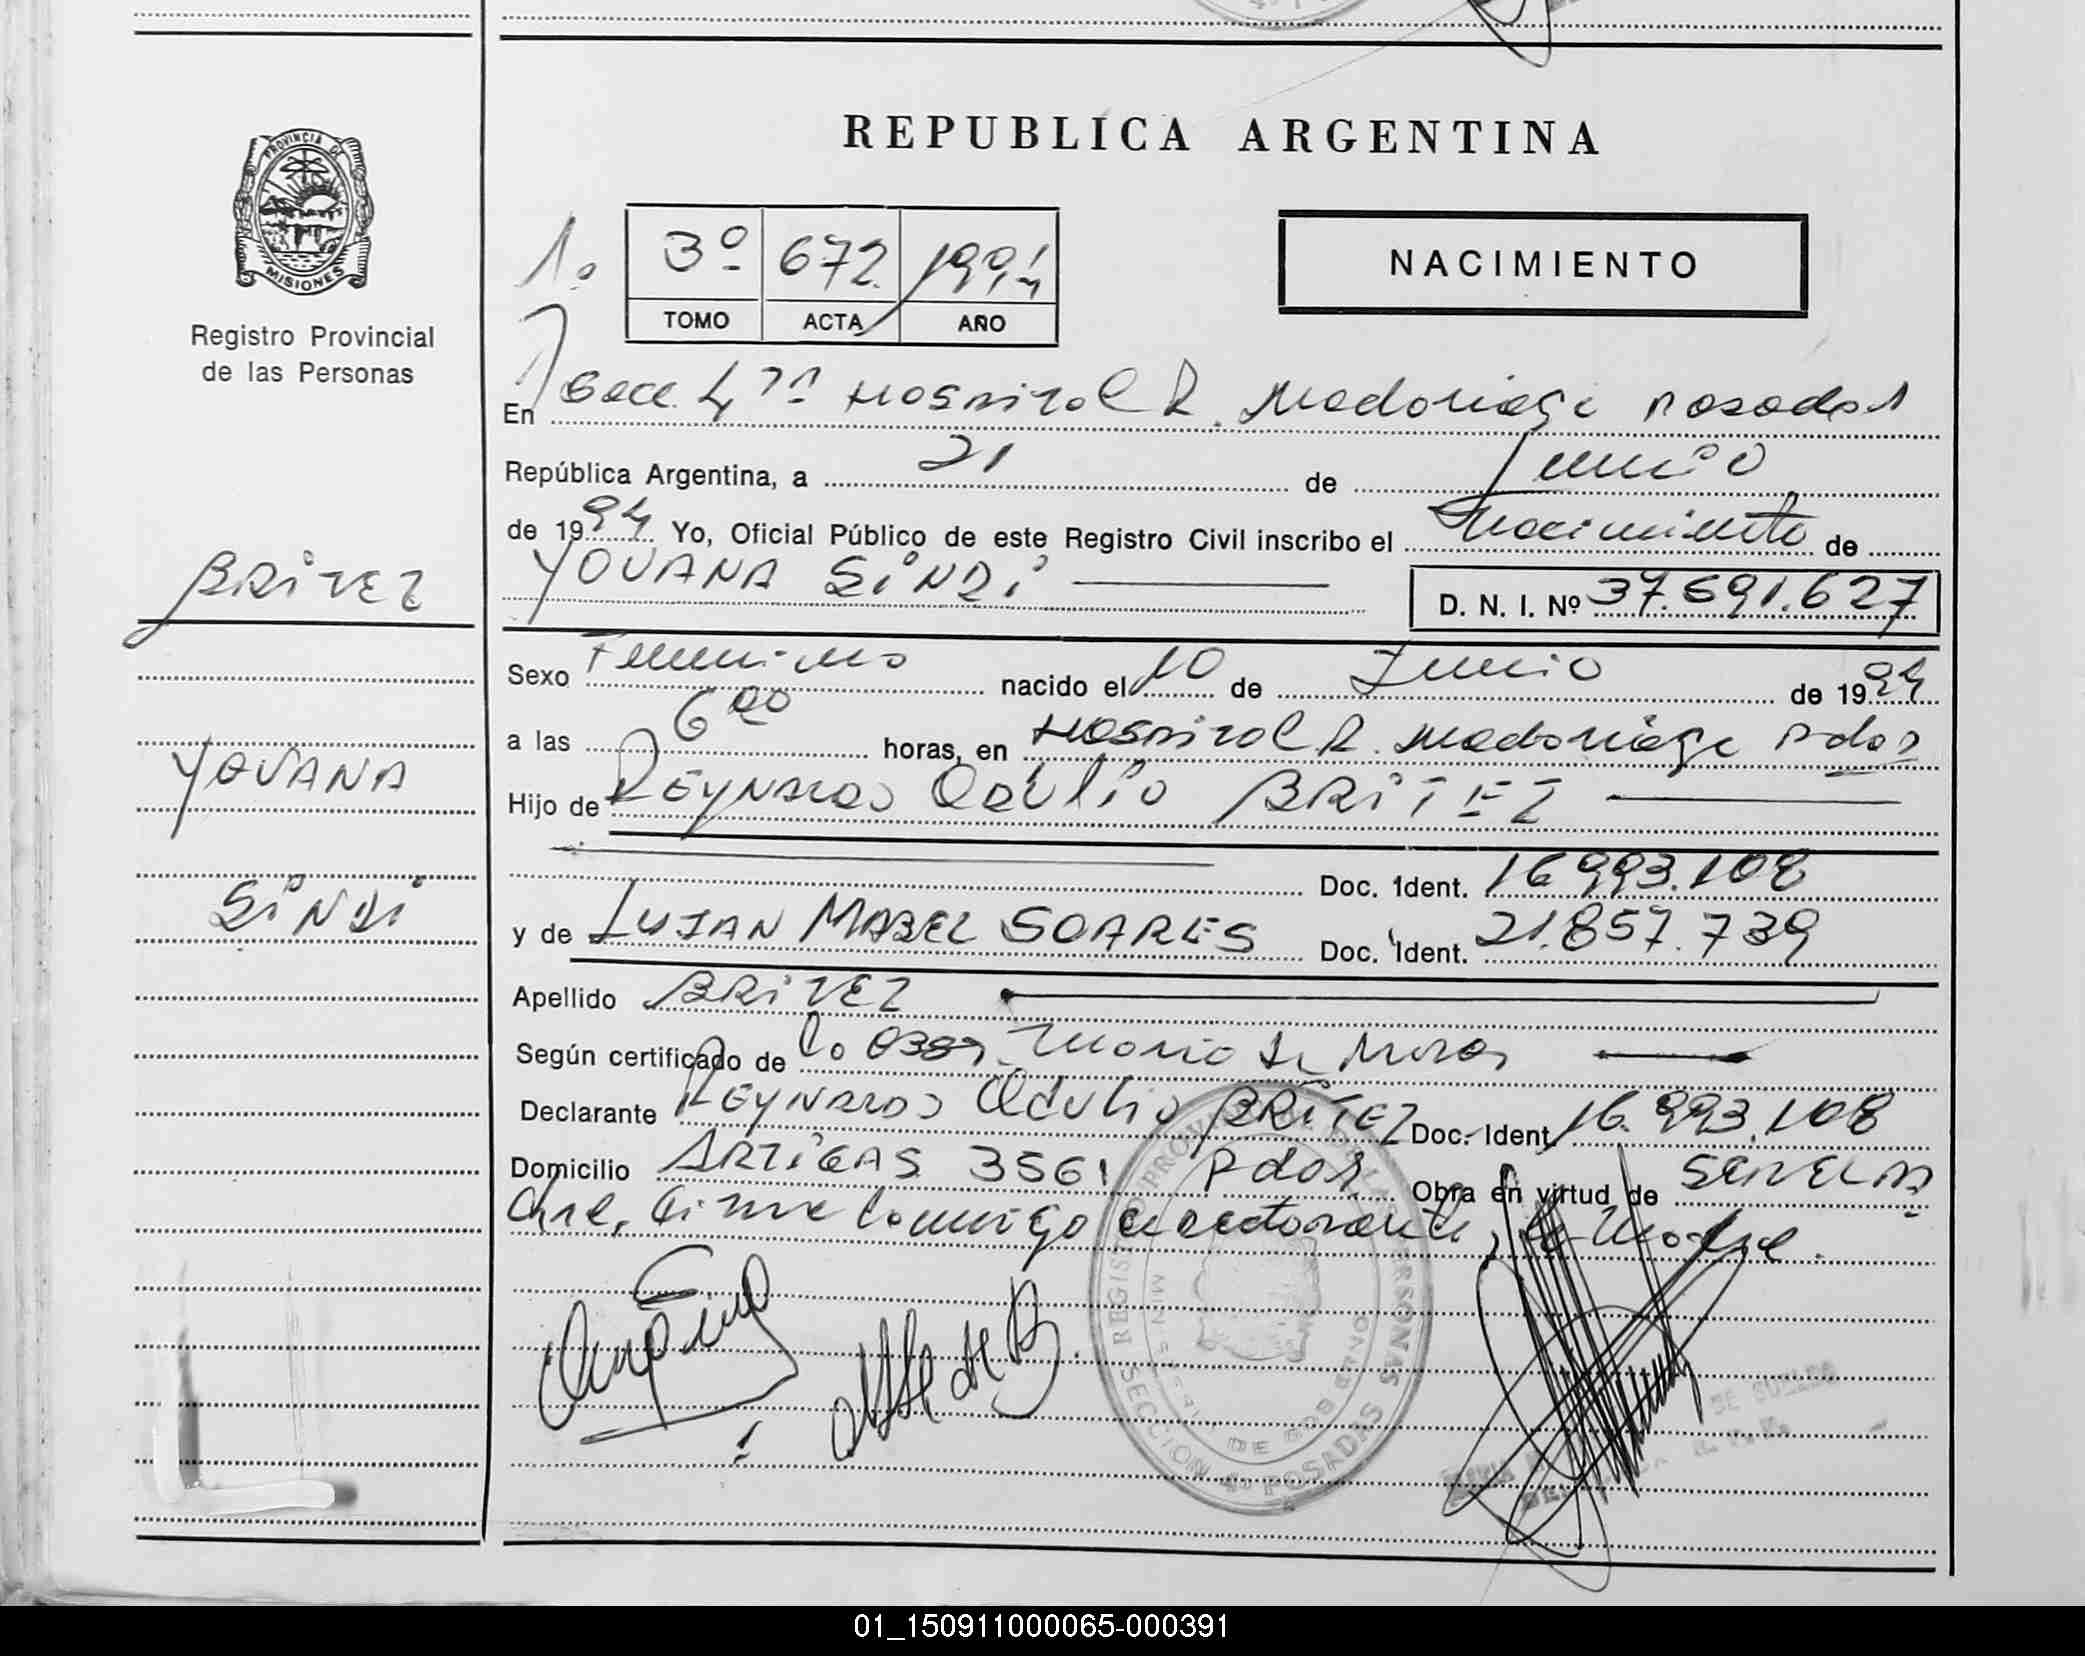 REPUBLICA ARGENTINA
PROVINCIA DE
MISIONES
Registro Provincial
de las Personas
3º 672 1994
TOMO ACTA AÑO
NACIMIENTO
En Secc. 4ta Hospital R. Madariaga Posadas
República Argentina, a 21 de Junio
de 1994 Yo, Oficial Público de este Registro Civil inscribo el Nacimiento de
YOVANA SINDI
D. N. I. Nº 37.691.627
BRITEZ
YOVANA
SINDI
Sexo Femenino nacido el 10 de Junio de 1994
a las 6 00 horas, en Hospital R. Madariaga Pdas
Hijo de REYNALDO Obdulio BRITEZ
Doc. Ident. 16.993.108
y de LUJAN MABEL SOARES Doc. Ident. 21.857.739
Apellido BRITEZ
Según certificado de
Declarante REYNALDO Obdulio BRITEZ Doc. Ident. 16.993.108
Domicilio ARTIGAS 3561 Pdas. Obra en virtud de
firma conmigo declarante, la Madre.
REGISTRO PROVINCIAL DE LAS PERSONAS
MINISTERIO DE GOBIERNO
SECCION 4a POSADAS
01_150911000065-000391